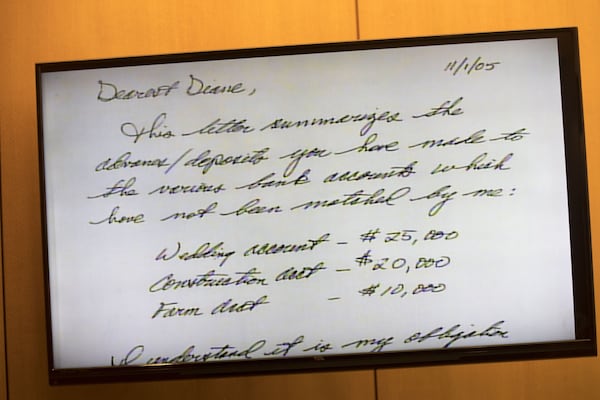 11/1/05
Dearest Diane,
This letter summarizes the
advances/deposits you have made to
the various bank accounts which
have not been matched by me:
Wedding account - $25,000
Construction acct - $20,000
Farm acct - $10,000
I understand it is my obligation